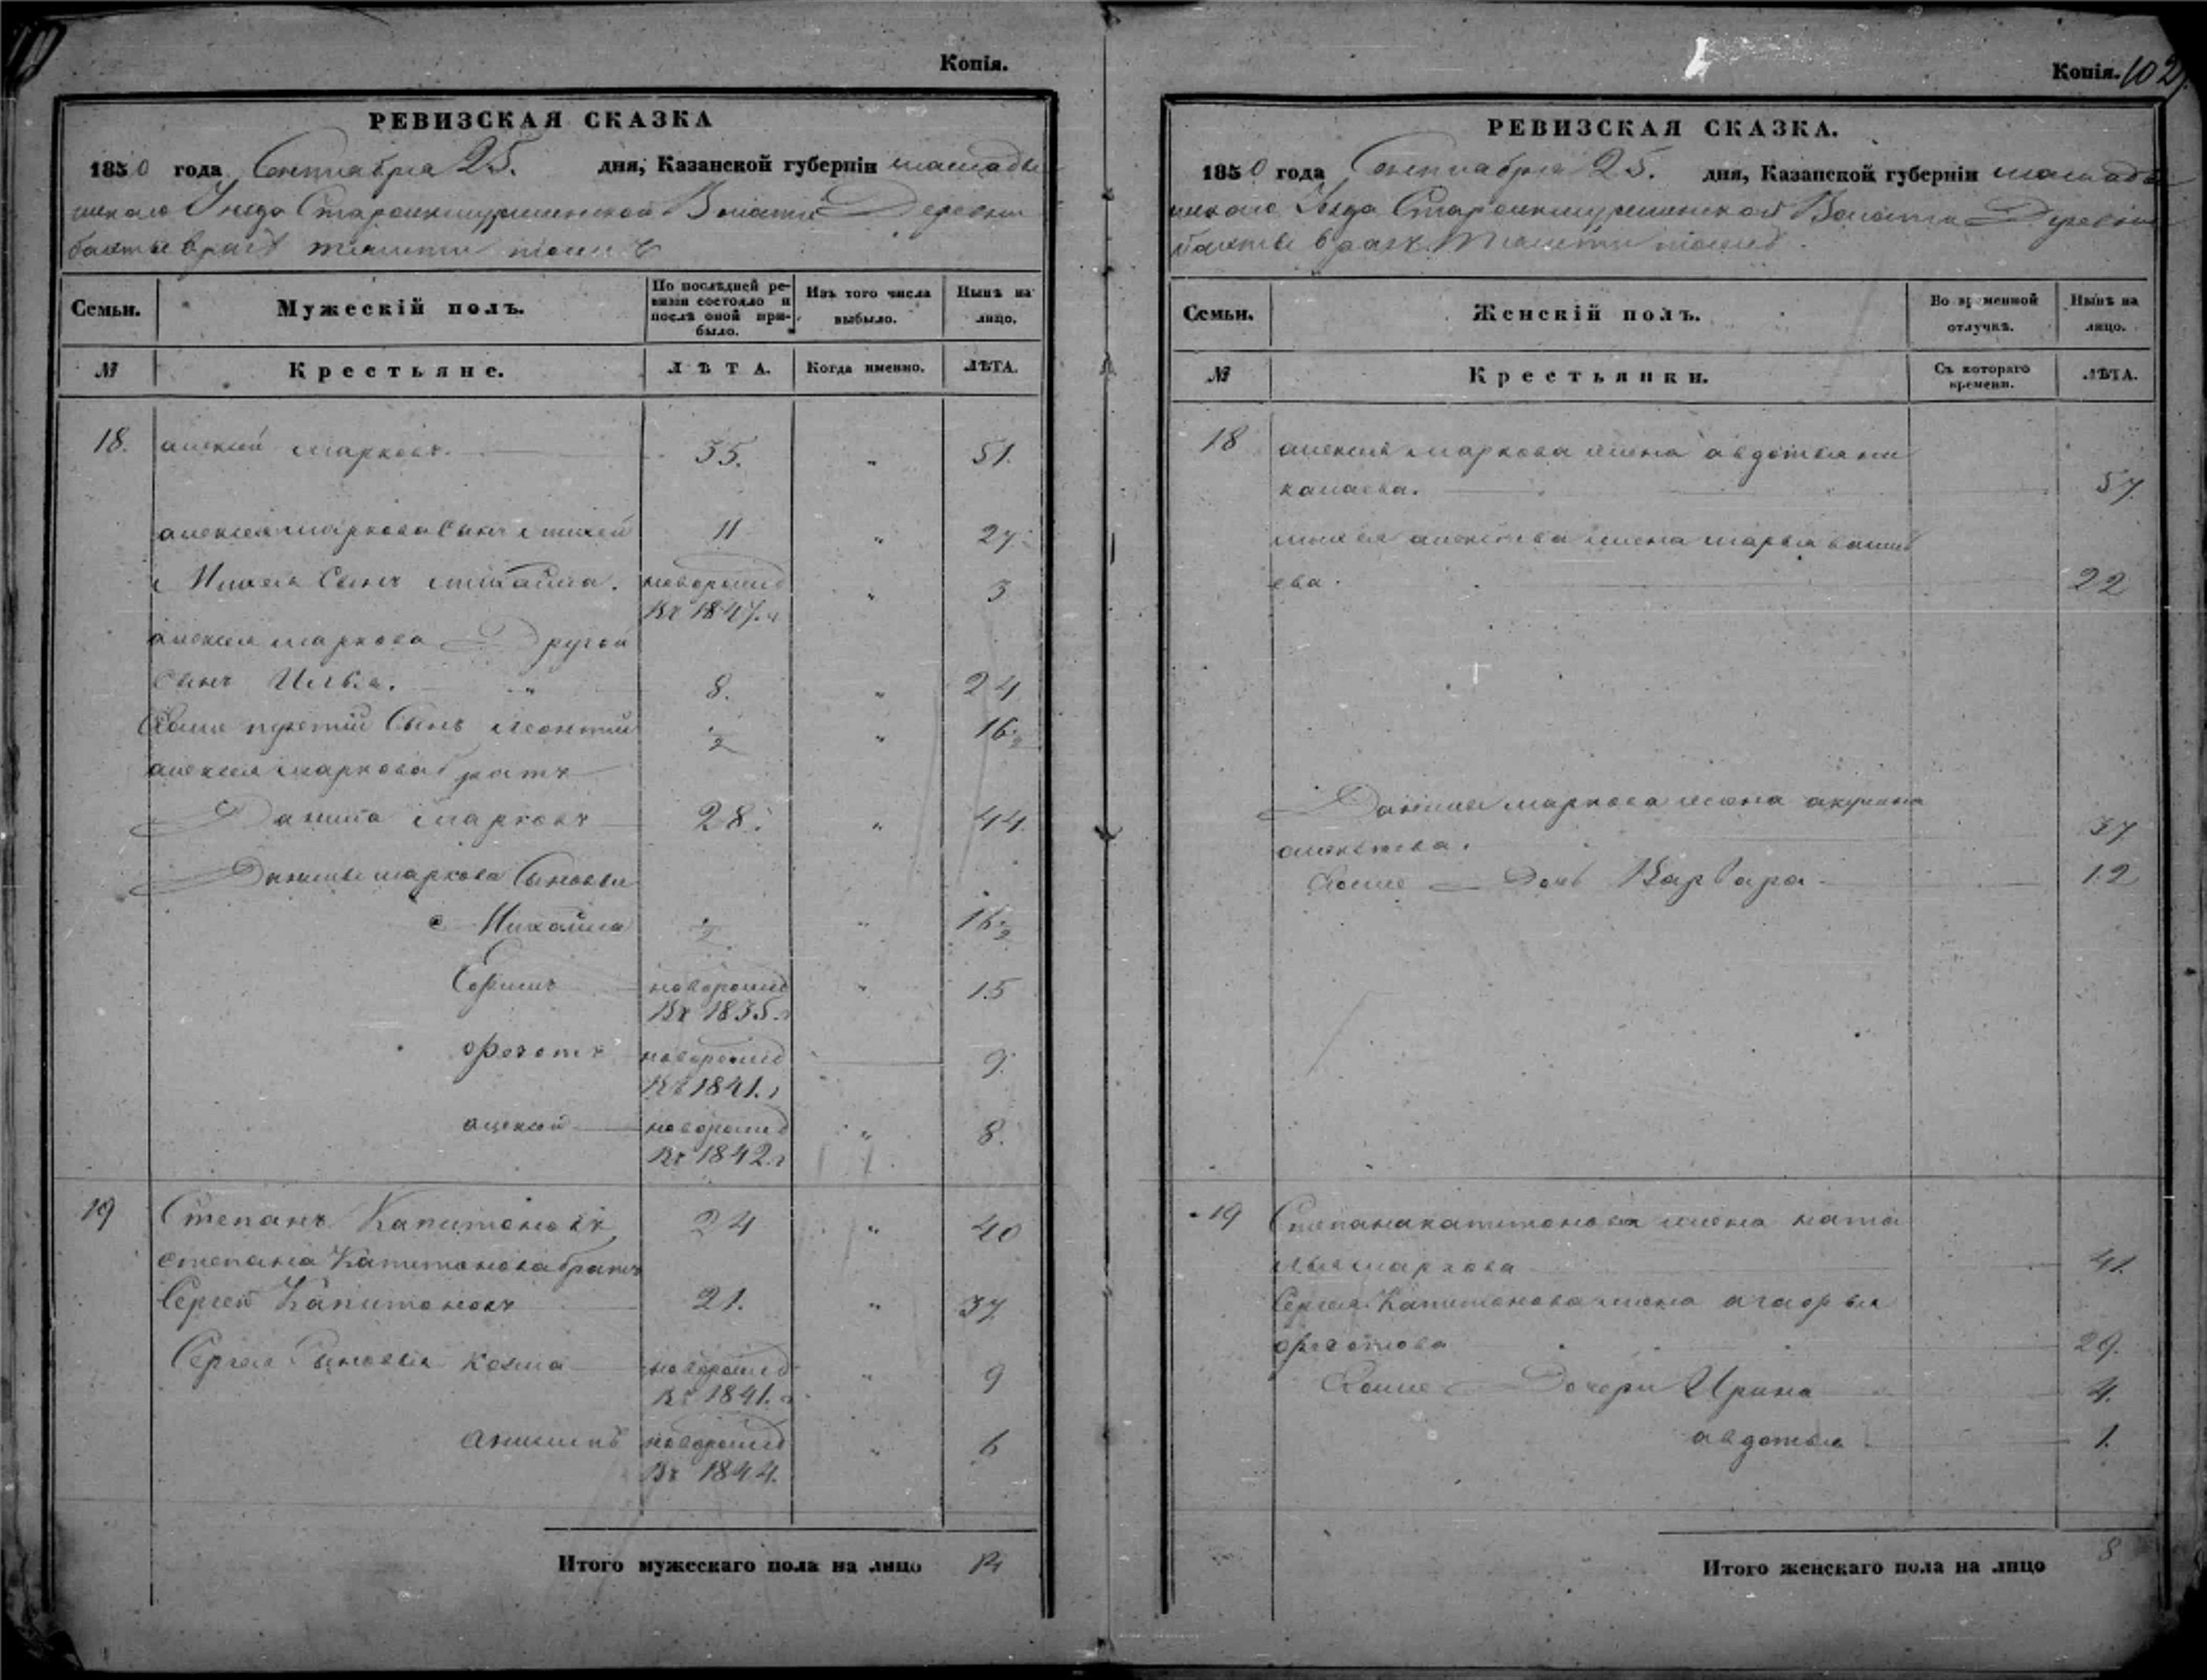 Копія.
РЕВИЗСКАЯ СКАЗКА
1850 года Сентября 25. дня, Казанской губерніи мамады
шского Уезда Староикшурминской Волости Деревни
Семьи. Мужескій полъ. По послѣдней ревизіи состояло и послѣ оной прибыло. Изъ того числа выбыло. Нынѣ на лицо.
№ Крестьяне. ЛѢТА. Когда именно. ЛѢТА.
18. алексей марковъ. 35. " 51.
алексея маркова Сынъ михей 11 " 27.
Михея Сынъ михайла. новорожд " 3
Въ 1847. г
алексея маркова Другой
Сынъ Илья. " 8. " 24
Ево же третий Сынъ леонтий 1/2 " 16 1/2
алексея маркова братъ
Данила марковъ 28. " 44
Данилы маркова Сыновья
Михайла 1/2 " 16 1/2
Ефимъ новорожд " 15
Въ 1835. г
фечотъ новорожд 9.
Въ 1841. г
алексей новорожд " 8.
Въ 1842. г
19 Степанъ Капитоновъ 24 " 40
степана Капитонова братъ
Сергей Капитоновъ 21. " 37
Сергея Сыновья козма новорожд " 9
Въ 1841. г
анисимъ новорожд " 6
Въ 1844.
Итого мужескаго пола на лицо 14
Копія. 102
РЕВИЗСКАЯ СКАЗКА.
1850 года Сентября 25. дня, Казанской губерніи мамады
шского Уезда Староикшурминской Волости Деревни
Семьи. Женскій полъ. Во временной отлучкѣ. Нынѣ на лицо.
№ Крестьянки. Съ котораго времени. ЛѢТА.
18 алексея маркова жена авдотья ни
колаева. 57.
михея алексеева жена марья васил
ева. 22
Данилы маркова жена акулина
алексеева. 37
Ево же Дочь Варвара 12
19 Степана капитонова жена ната
лья маркова 41.
Сергея Капитонова жена агафья
федотова 29.
Ево же Дочери Ирина 4.
авдотья 1.
Итого женскаго пола на лицо 8